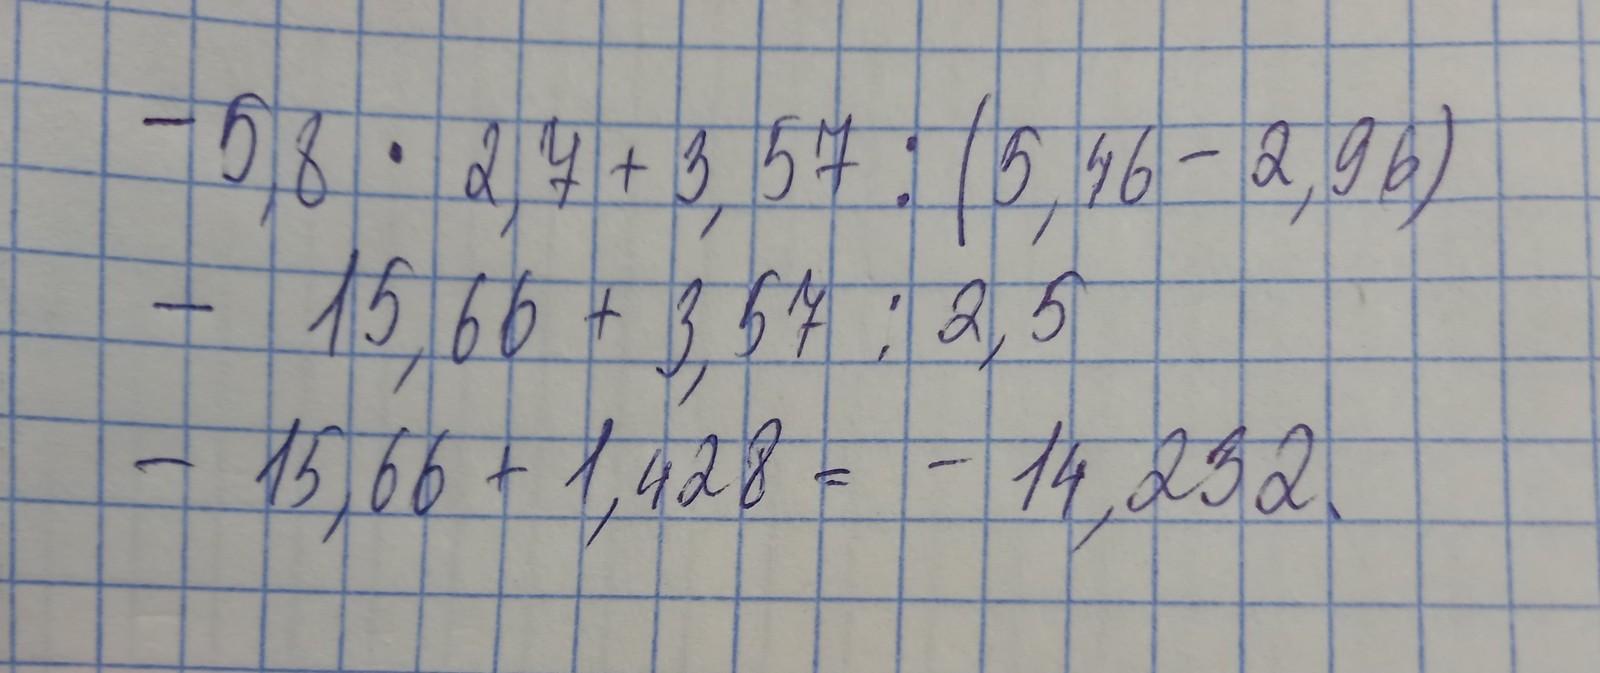 -5,8 · 2,7 + 3,57 : (5,46 - 2,96)
- 15,66 + 3,57 : 2,5
- 15,66 + 1,428 = - 14,232.